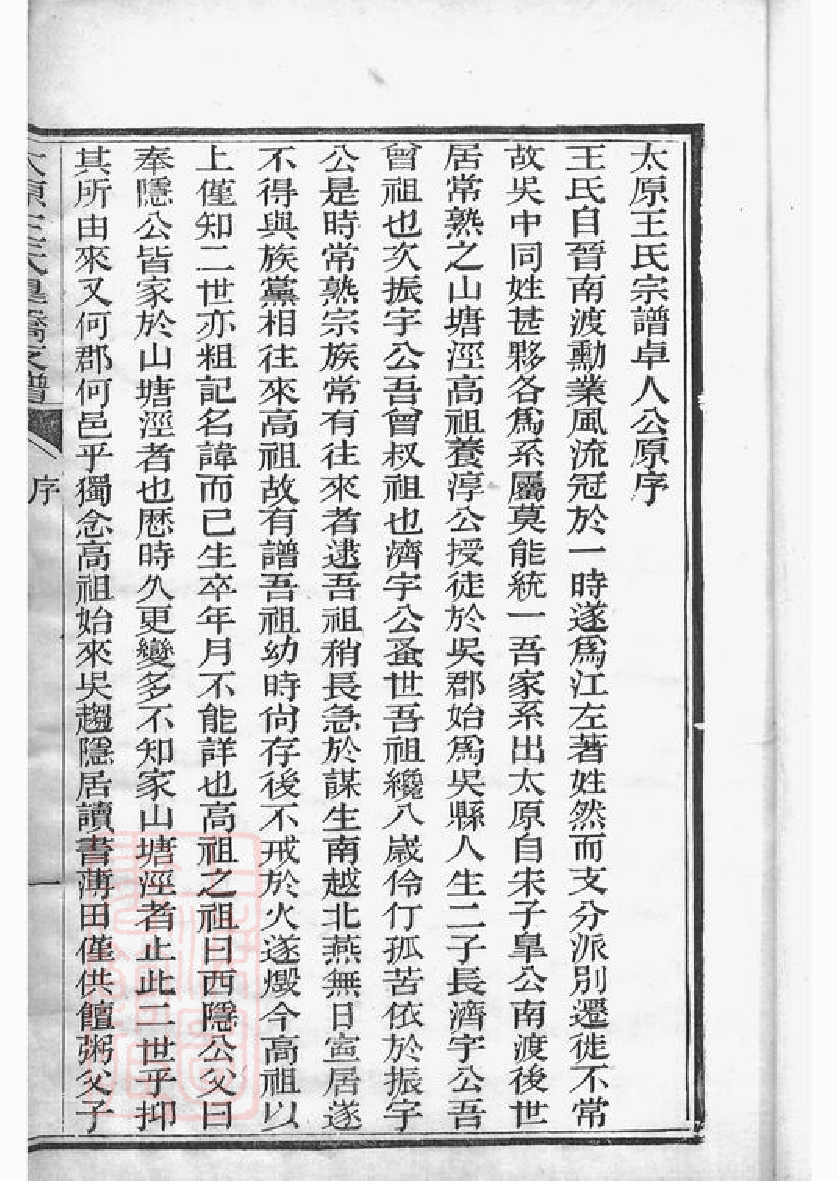 太原王氏宗譜卓人公原序
王氏自晉南渡勳業風流冠於一時遂爲江左著姓然而支分派別遷徙不常
故吳中同姓甚夥各爲系屬莫能統一吾家系出太原自宋子皐公南渡後世
居常熟之山塘涇高祖養淳公授徒於吳郡始爲吳縣人生二子長濟宇公吾
曾祖也次振宇公吾曾叔祖也濟宇公蚤世吾祖纔八歲伶仃孤苦依於振宇
公是時常熟宗族常有往來者逮吾祖稍長急於謀生南越北燕無日寍居遂
不得與族黨相往來高祖故有譜吾祖幼時尙存後不戒於火遂燬今高祖以
上僅知二世亦粗記名諱而已生卒年月不能詳也高祖之祖曰西隱公父曰
奉隱公皆家於山塘涇者也厯時久更變多不知家山塘涇者止此二世乎抑
其所由來又何郡何邑乎獨念高祖始來吳趨隱居讀書薄田僅供饘粥父子
太原王氏皐橋支譜
序
一